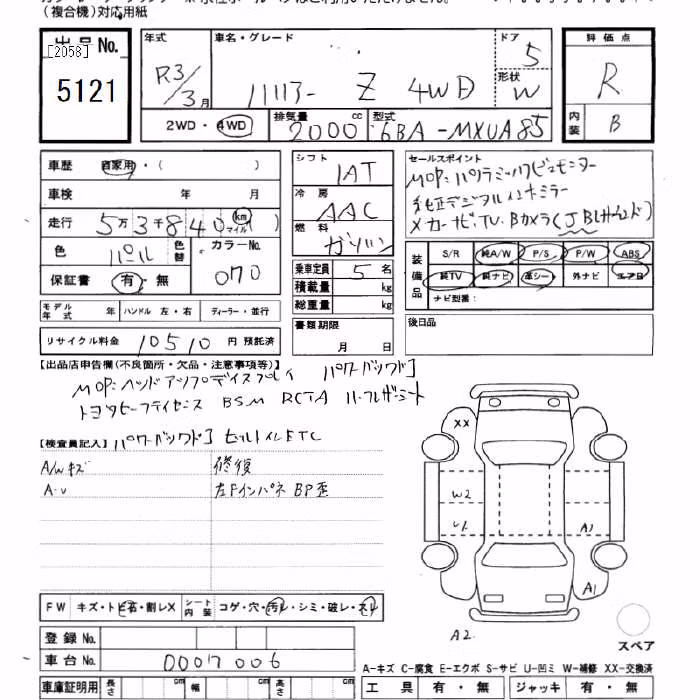 (複合機)対応用紙
出品No.
[2058]
5121
年式
R3/3月
車名・グレード
ハリアー Z 4WD
ドア
5
形状
W
評価点
R
内装
B
2WD・4WD
排気量
2000 cc
型式
6BA-MXUA85
車歴 自家用・( )
車検 年 月
走行 5万3千840 km マイル( )
色 パール
色替
カラーNo.
070
保証書 有・無
シフト
IAT
冷房
AAC
燃料
ガソリン
乗車定員 5 名
積載量 kg
総重量 kg
セールスポイント
MOP:パノラミックビューモニター
純正デジタルインナーミラー
メーカーナビ,TV.Bカメラ(JBLサウンド)
装備品
S/R 純A/W P/S P/W ABS
純TV 純ナビ 革シート 外ナビ エアB
ナビ型番:
モデル年式 年 ハンドル 左・右 ディーラー・並行
リサイクル料金 10510 円 預託済
書類期限
月 日
後日品
【出品店申告欄(不良箇所・欠品・注意事項等)】
MOP:ヘッドアップディスプレイ パワーバックドア
トヨタセーフティセンス BSM RCTA ハーフレザーシート
【検査員記入】 パワーバックドア ビルトインETC
A/Wキズ 修復
A・U 左Fインパネ BP歪
XX
W2
U1
A1
A1
A2
FW キズ・トビ石・割レX
シート内装 コゲ・穴・汚レ・シミ・破レ・スレ
スペア
登録No.
車台No. 0007006
A-キズ C-腐食 E-エクボ S-サビ U-凹ミ W-補修 XX-交換済
車庫証明用 長さ cm 幅 cm 高さ cm
工具 有・無 ジャッキ 有・無